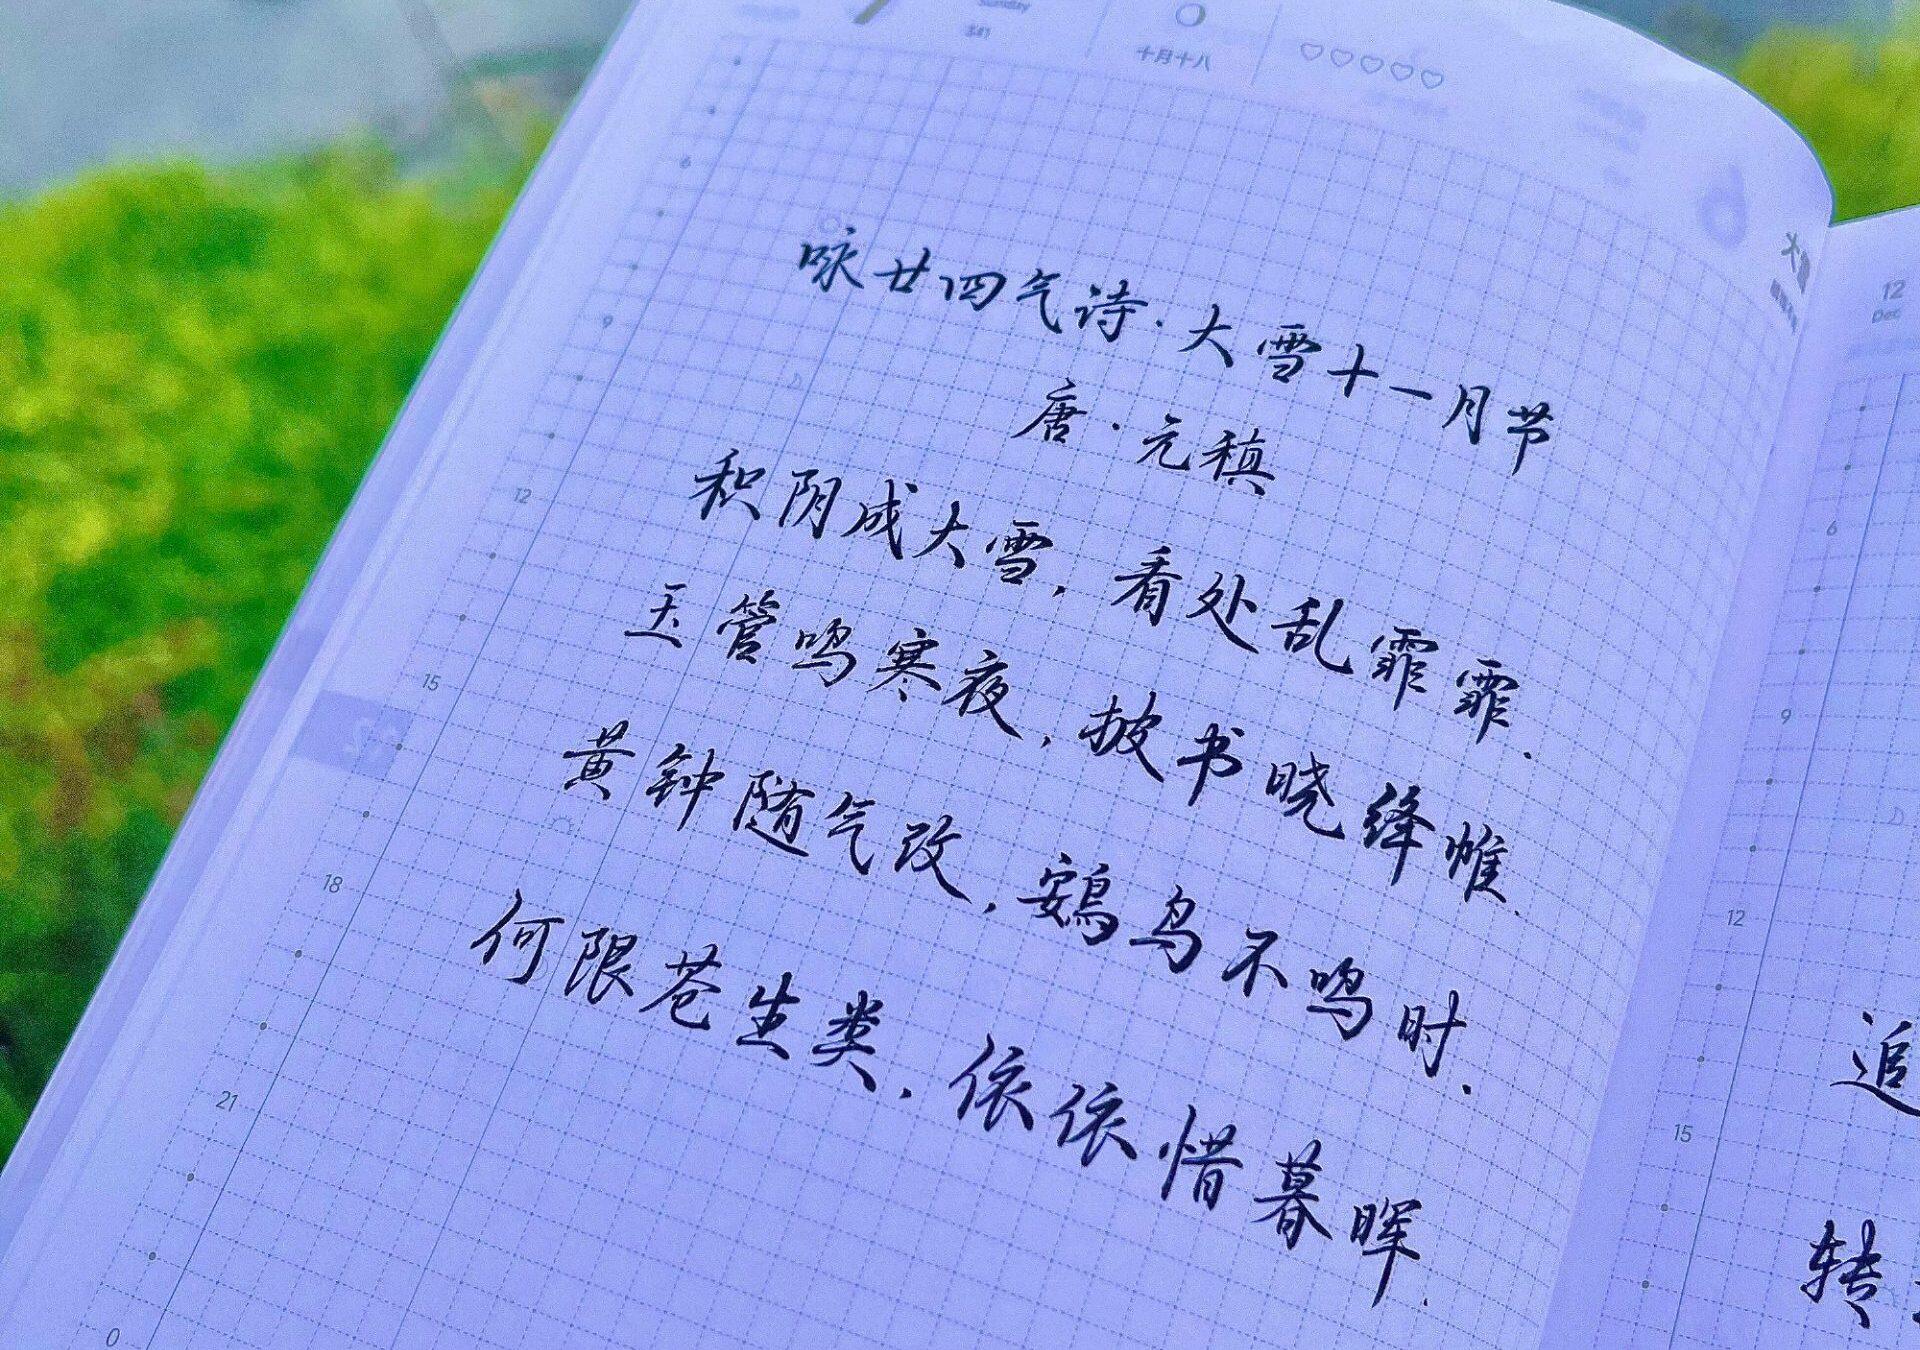 Sunday
341
十月十八
咏廿四气诗·大雪十一月节
唐·元稹
积阴成大雪，看处乱霏霏．
玉管鸣寒夜，披书晓绛帷．
黄钟随气改，鴳鸟不鸣时．
何限苍生类，依依惜暮晖．
6
9
12
15
18
21
0
12
Dec
6
9
12
15
追
转